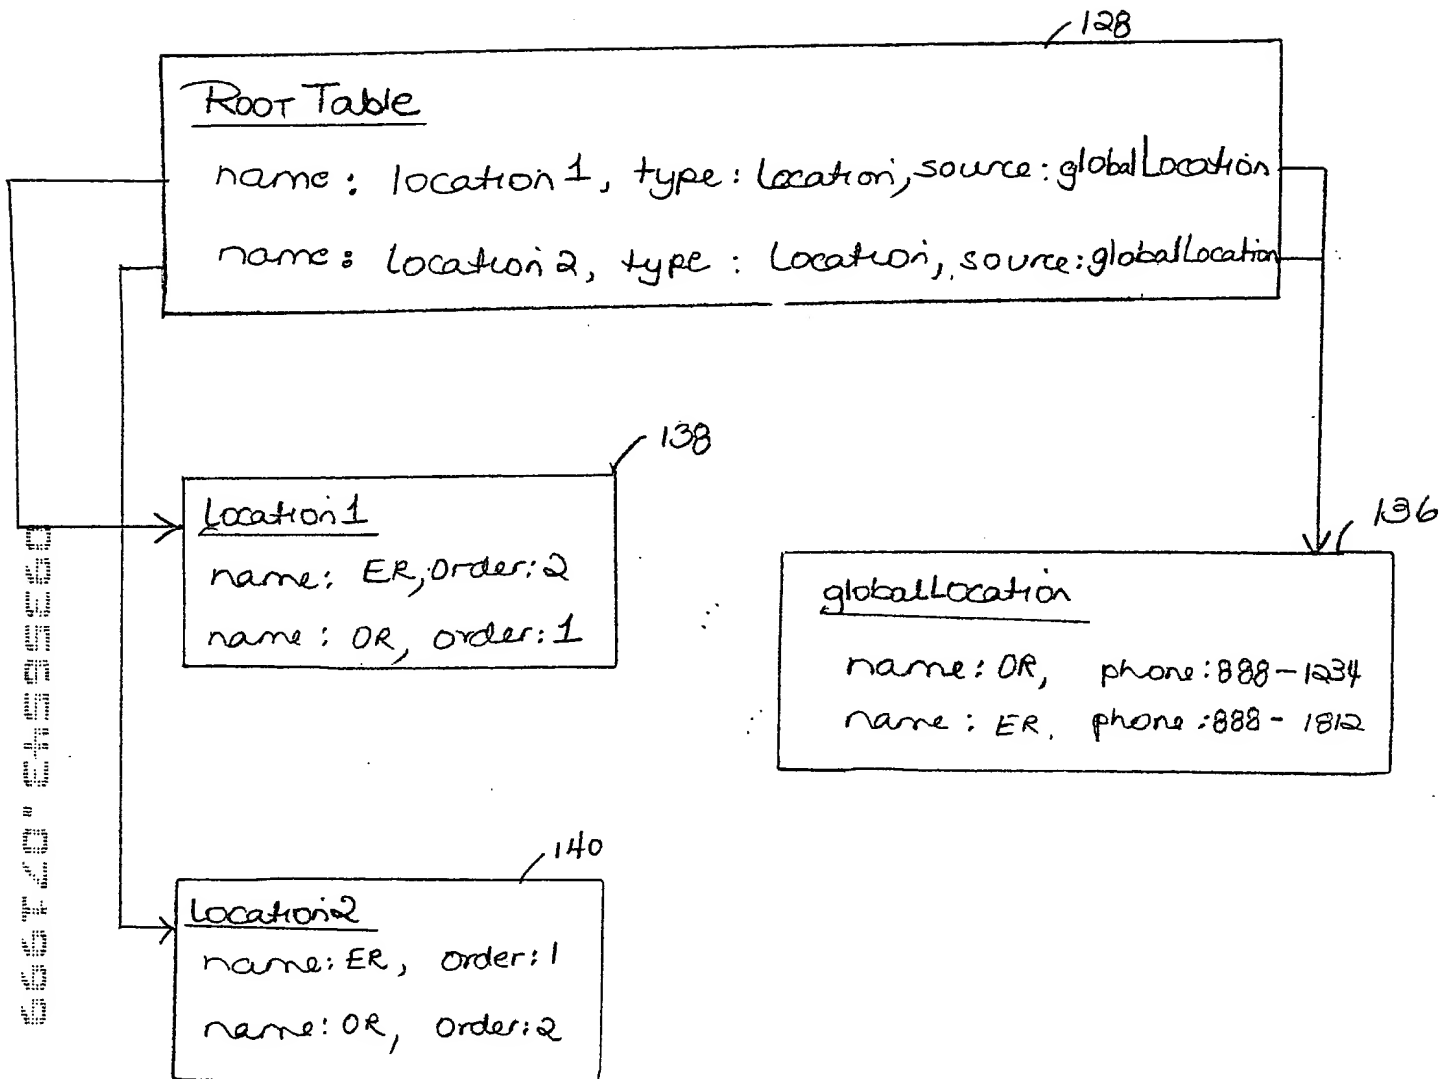 128
Root Table
name: location1, type: Location, source: globalLocation
name: location2, type: Location, source: globalLocation
138
Location1
name: ER, Order:2
name: OR, order:1
136
globalLocation
name: OR, phone:888-1234
name: ER, phone:888-1812
140
Location2
name: ER, Order:1
name: OR, Order:2